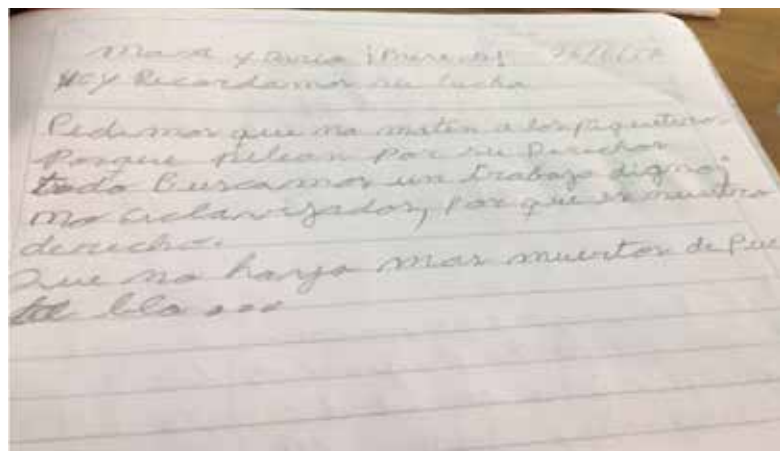 Maxi y Dario ¡Presente! 26/6/18
Hoy Recordamos su lucha
Pedimos que no maten a los piqueteros
Porque pelean Por su Derechos
todo Buscamos un trabajo digno;
no esclavizador, Por que es nuestro
derecho.
Que no haya mas muertos de Pue
blo ...